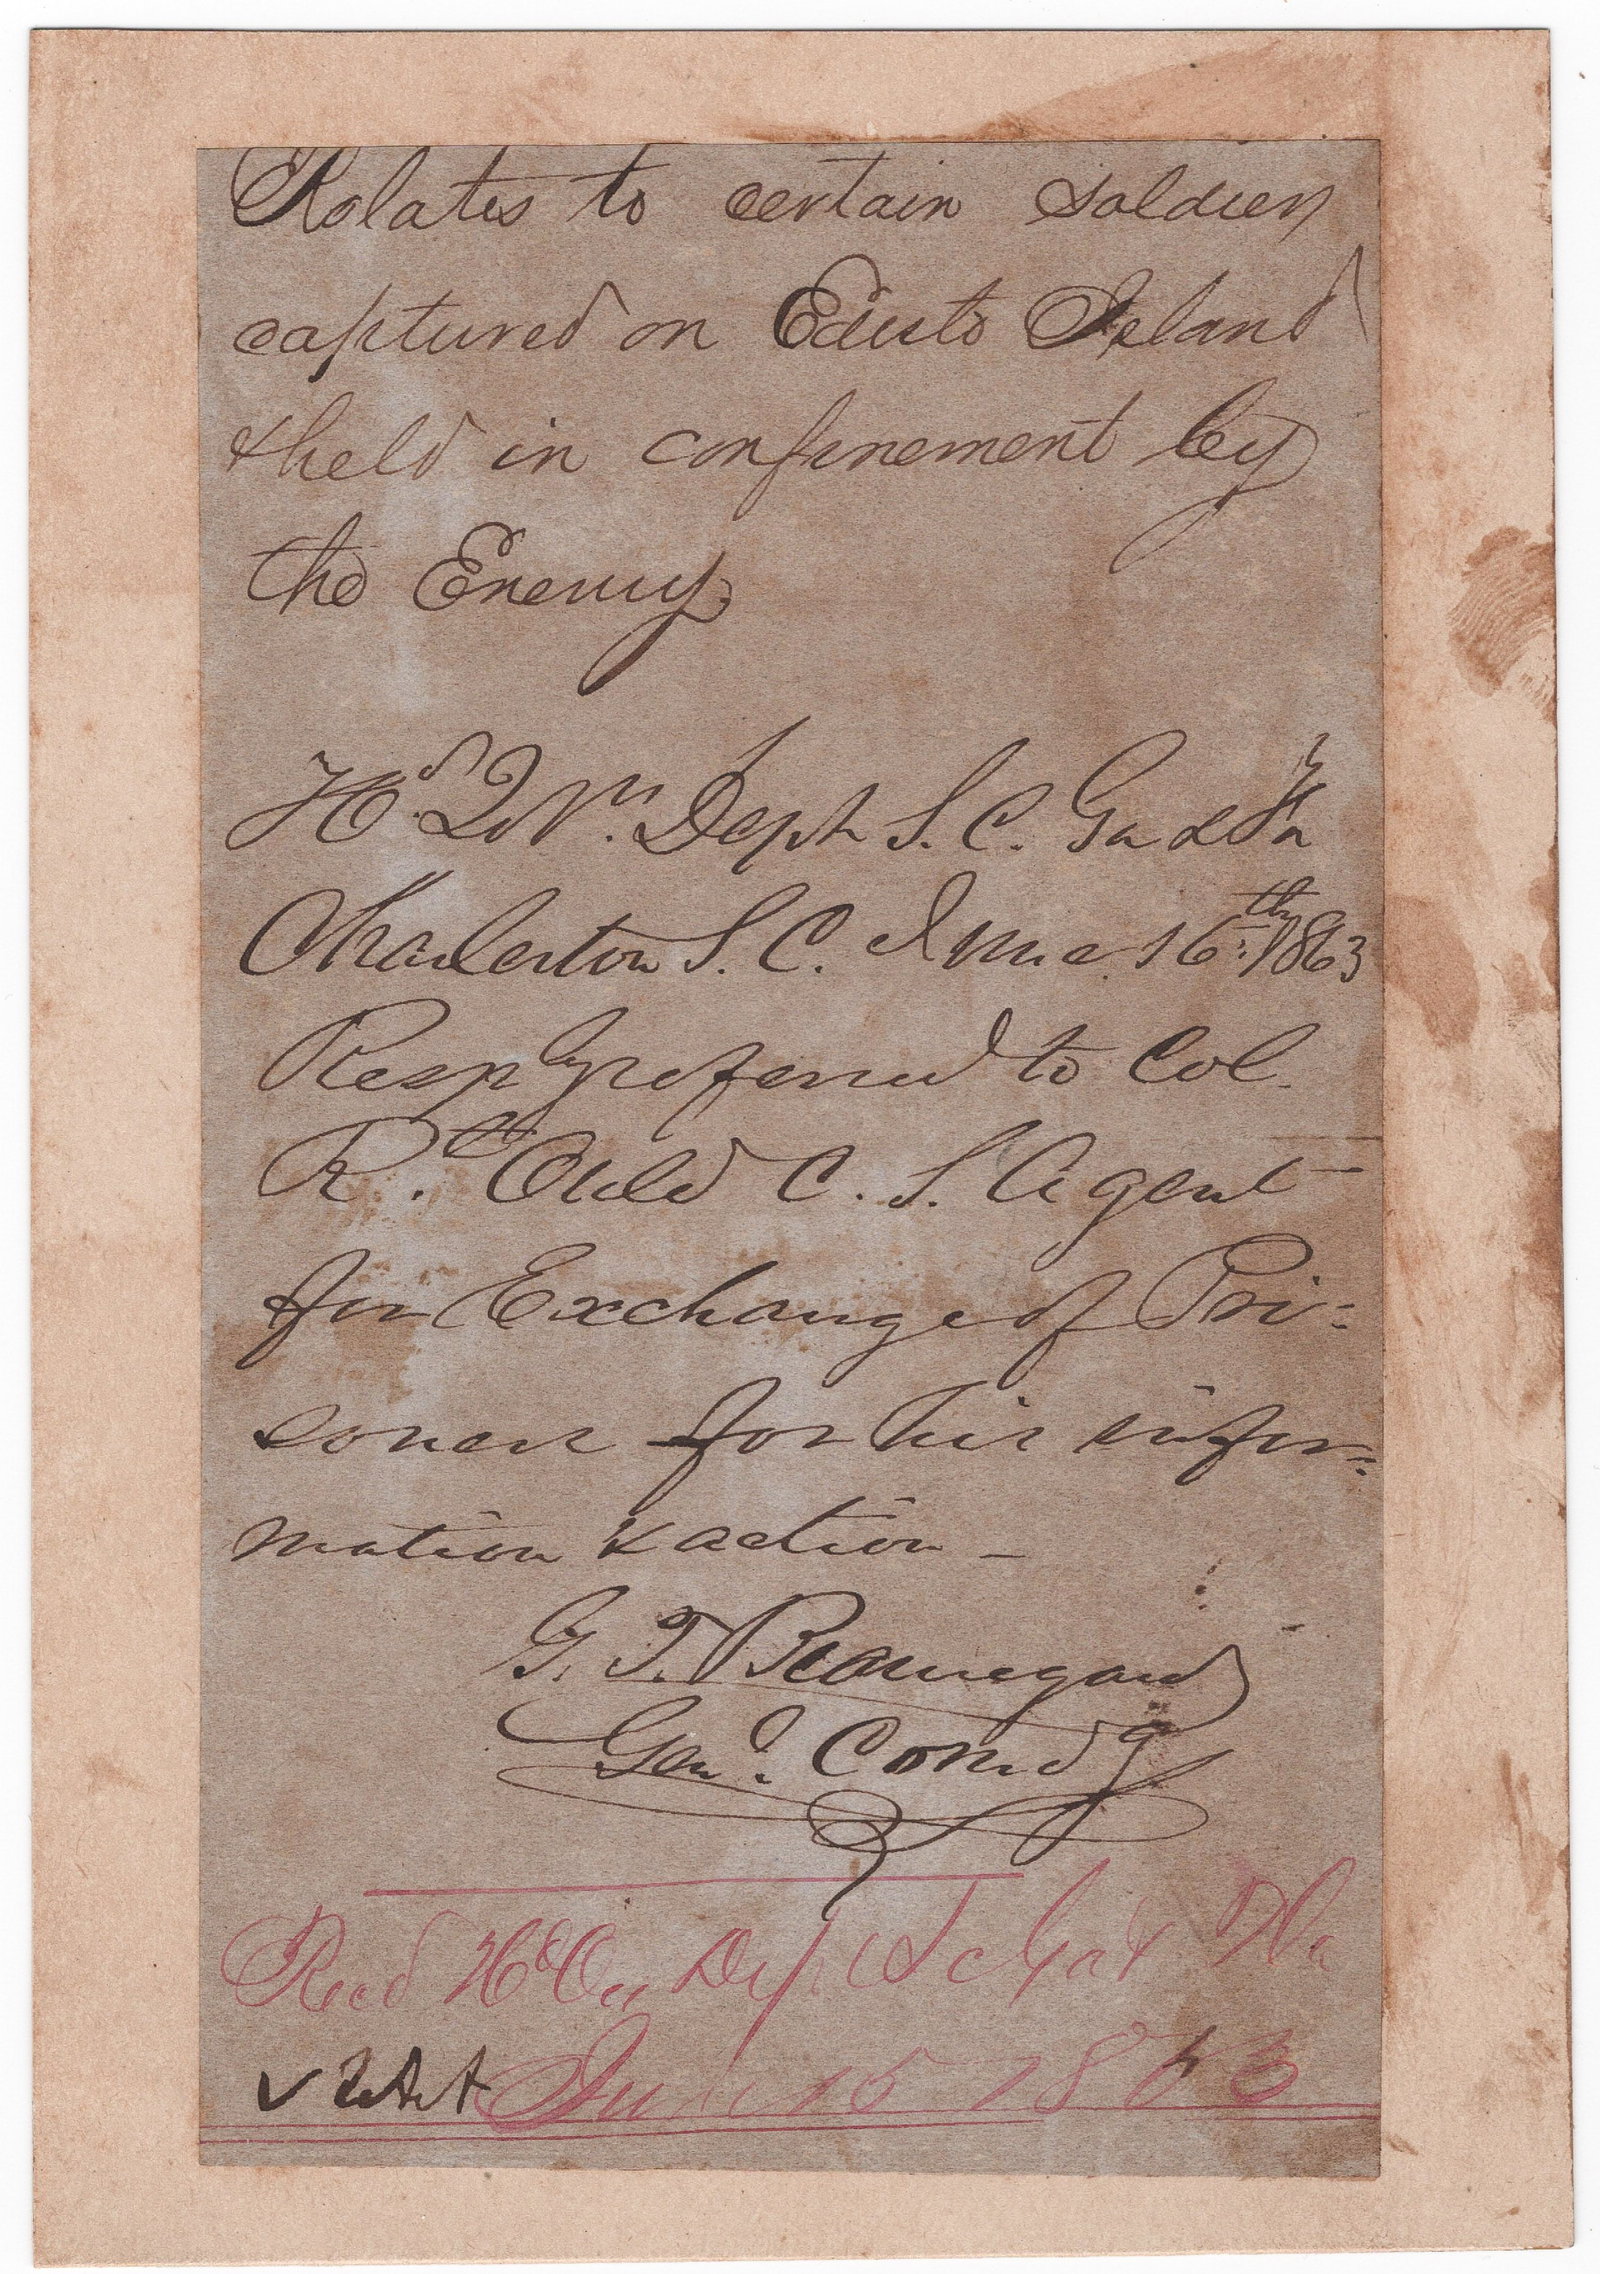 Relates to certain soldiers
captured on Edisto Island
& held in confinement by
the Enemy
Hd. Qrs. Dept S. C. Ga & Fla
Charleston S. C. June 16th 1863
Resply referred to Col.
R. Ould C. S. Agent
for Exchange of Pri-
soners for his infor-
mation & action -
G. T. Beauregard
Genl. Comdg
Recd Hd Qrs Dept So Ca Ga & Fla
June 15 1863